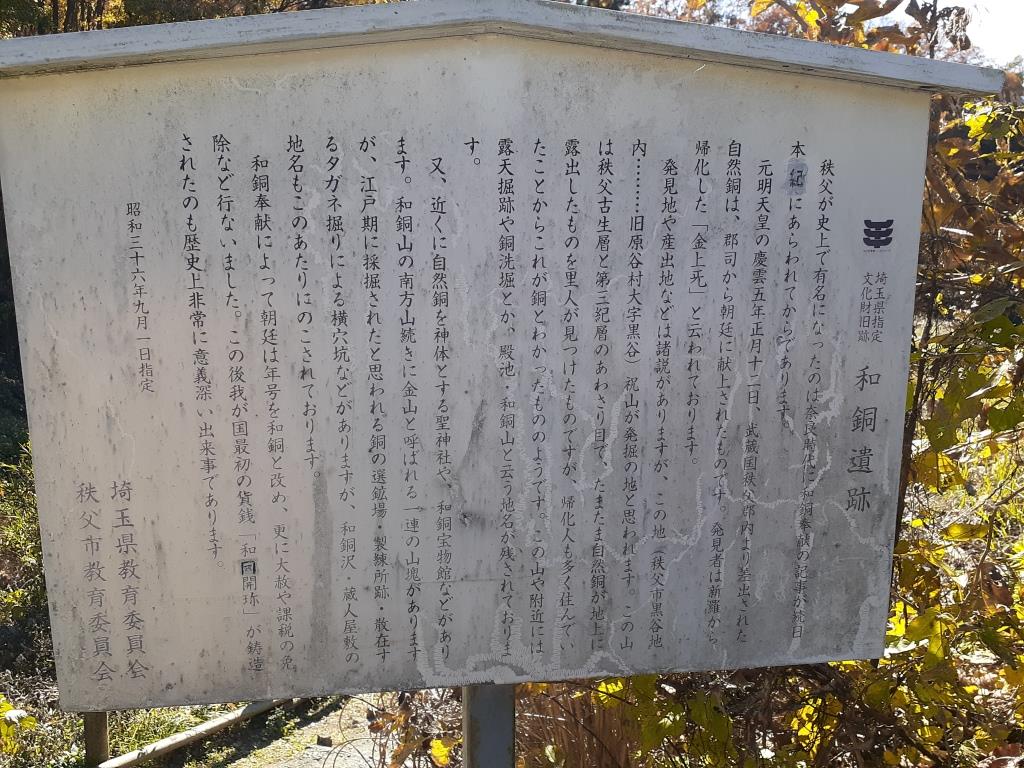 埼玉県指定
文化財旧跡
和銅遺跡
秩父が史上で有名になったのは奈良時代に和銅奉献の記事が続日
本紀にあらわれてからであります。
元明天皇の慶雲五年正月十一日、武蔵国秩父郡内より差出された
自然銅は、郡司から朝廷に献上されたものです。発見者は新羅から
帰化した「金上旡」と云われております。
発見地や産出地などは諸説がありますが、この地（秩父市黒谷地
内………旧原谷村大字黒谷）祝山が発掘の地と思われます。この山
は秩父古生層と第三紀層のあわさり目で、たまたま自然銅が地上に
露出したものを里人が見つけたものですが、帰化人も多く住んでい
たことからこれが銅とわかったもののようです。この山や附近には
露天掘跡や銅洗堀とか、殿池・和銅山と云う地名が残されておりま
す。
又、近くに自然銅を神体とする聖神社や、和銅宝物館などがあり
ます。和銅山の南方山続きに金山と呼ばれる一連の山塊があります
が、江戸期に採掘されたと思われる銅の選鉱場・製練所跡・散在す
るタガネ掘りによる横穴坑などがありますが、和銅沢・蔵人屋敷の
地名もこのあたりにのこされております。
和銅奉献によって朝廷は年号を和銅と改め、更に大赦や課税の免
除など行ないました。この後我が国最初の貨銭「和同開珎」が鋳造
されたのも歴史上非常に意義深い出来事であります。
昭和三十六年九月一日指定
埼玉県教育委員会
秩父市教育委員会